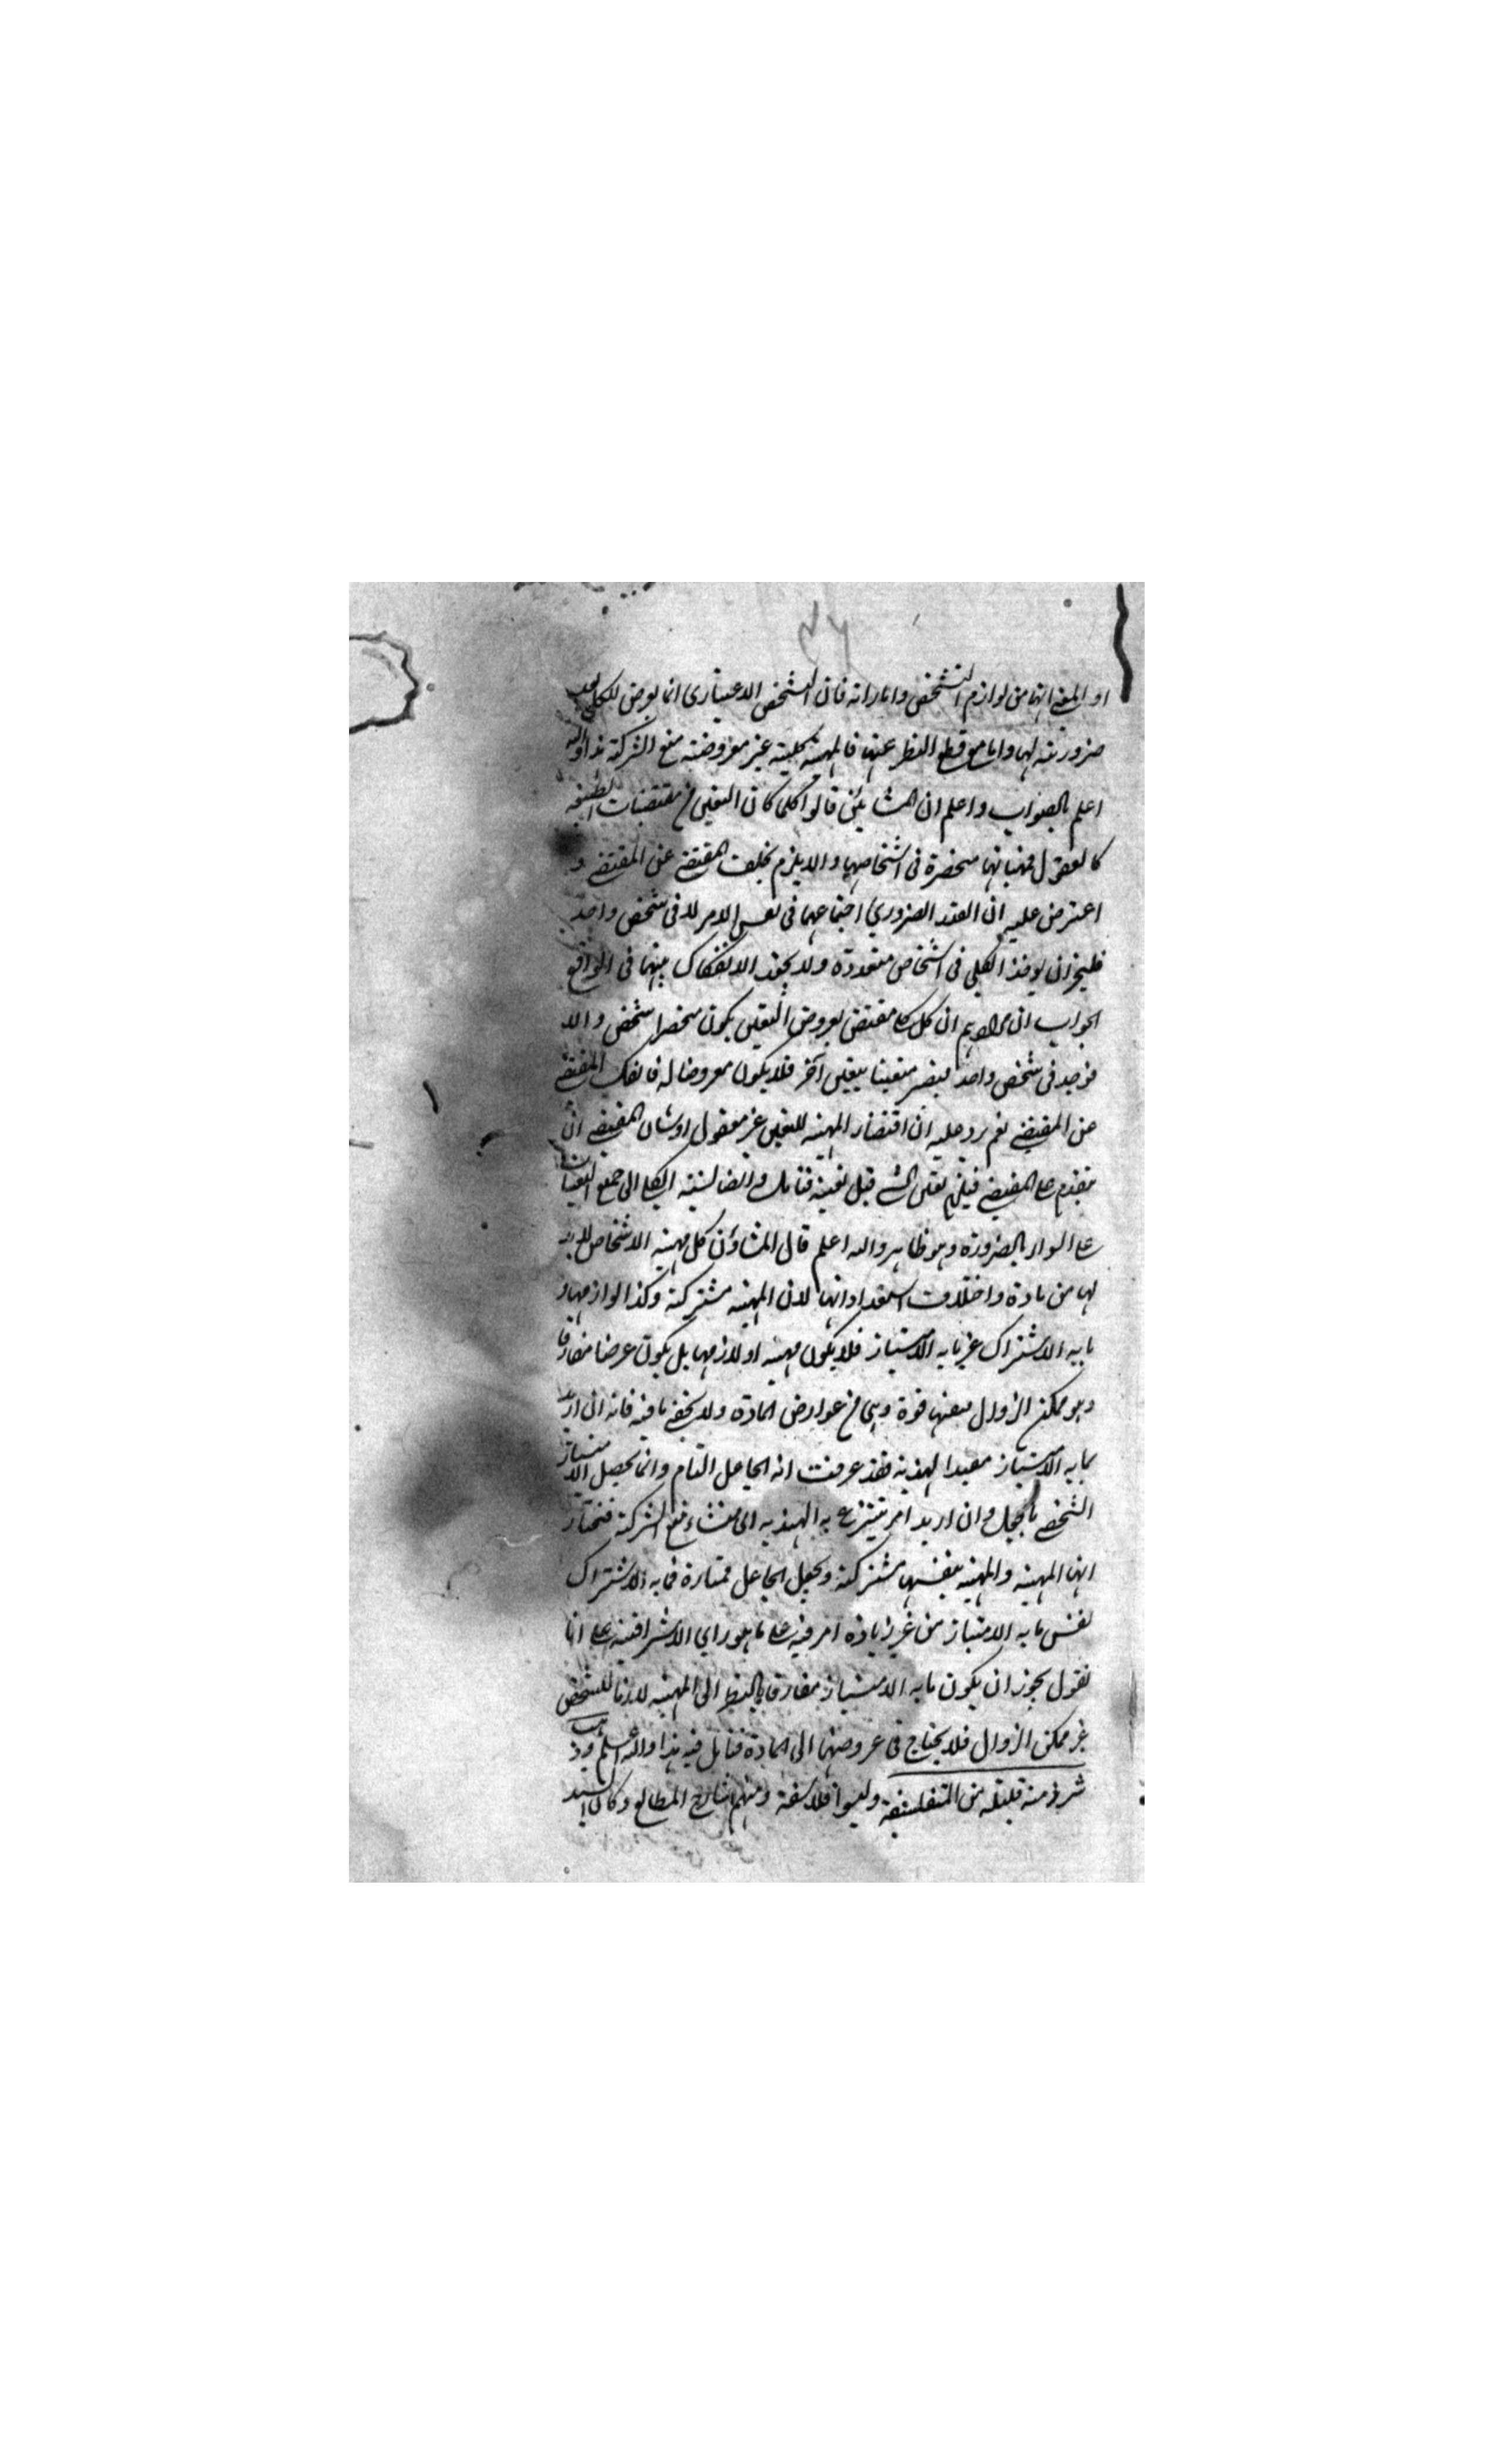 ٣٦
او المعنى انها من لوازم التشخص واماراته فان التشخص الاعتبارى انما يعرض للكلى
ضرورته لها واما مع قطع النظر عنها فالمهية كلية غير معروضة منع الشركة هذا والله
اعلم بالصواب واعلم ان المشائين قالوا كلما كان التعين من مقتضيات الطبيعة
كالعقول فمهياتها منحصرة فى اشخاصها والا يلزم تخلف المقتضى عن المقتضى و
اعترض عليه ان القدر الضرورى اجتماعهما فى نفس الامر لا فى شخص واحد
فليجز ان يوجد الكلى فى اشخاص متعددة ولا يوجد الانفكاك بينهما فى الواقع
الجواب ان مرادهم ان كل مقتض لعروض التعين يكون منحصرا شخص والا
فوجد فى شخص واحد فيصير متعينا بتعين آخر فلا يكون معروضا له فانفك المقتضى
عن المقتضى نعم يرد عليه ان اقتضاء المهية للتعين غير معقول اذ شان المقتضى ان
يتقدم على المقتضى فيلزم تعين الشى قبل تعينه فتامل وايضا نسبة الكلى الى جميع التعينات
على السواء بالضرورة وهو ظاهر والله اعلم قال المشاؤن كل مهية الاشخاص لا بد
لها من مادة واختلاف استعداداتها لان المهية مشتركة وكذا لوازمها و
ما به الاشتراك غير ما به الامتياز فلا يكون مهية او لازمها بل يكون عرضا مفارقا
وهو ممكن الزوال فعنها قوة وهى من عوارض المادة ولا يخفى ما فيه فانه ان اريد
بما به الامتياز مفيدا لهذيته فقد عرفت انه الجاعل التام وانما يحصل الامتياز
الشخصى بالجعل وان اريد امر ينتزع به الهذية اى منشاء منع الشركة فنختار
انها المهية والمهية بنفسها مشتركة وبجعل الجاعل ممتازة فما به الاشتراك
نفس ما به الامتياز من غير زيادة امر فيه على ما هو راى الاشراقية على انا
نقول يجوز ان يكون ما به الامتياز مفارقا بالنظر الى المهية لازما للشخص
غير ممكن الزوال فلا يحتاج فى عروضها الى المادة فتامل فيه هذا والله اعلم وذهب
شرذمة قليلة من المتفلسفة وليسوا فلاسفة ومنهم شارح المطالع وكان السيد